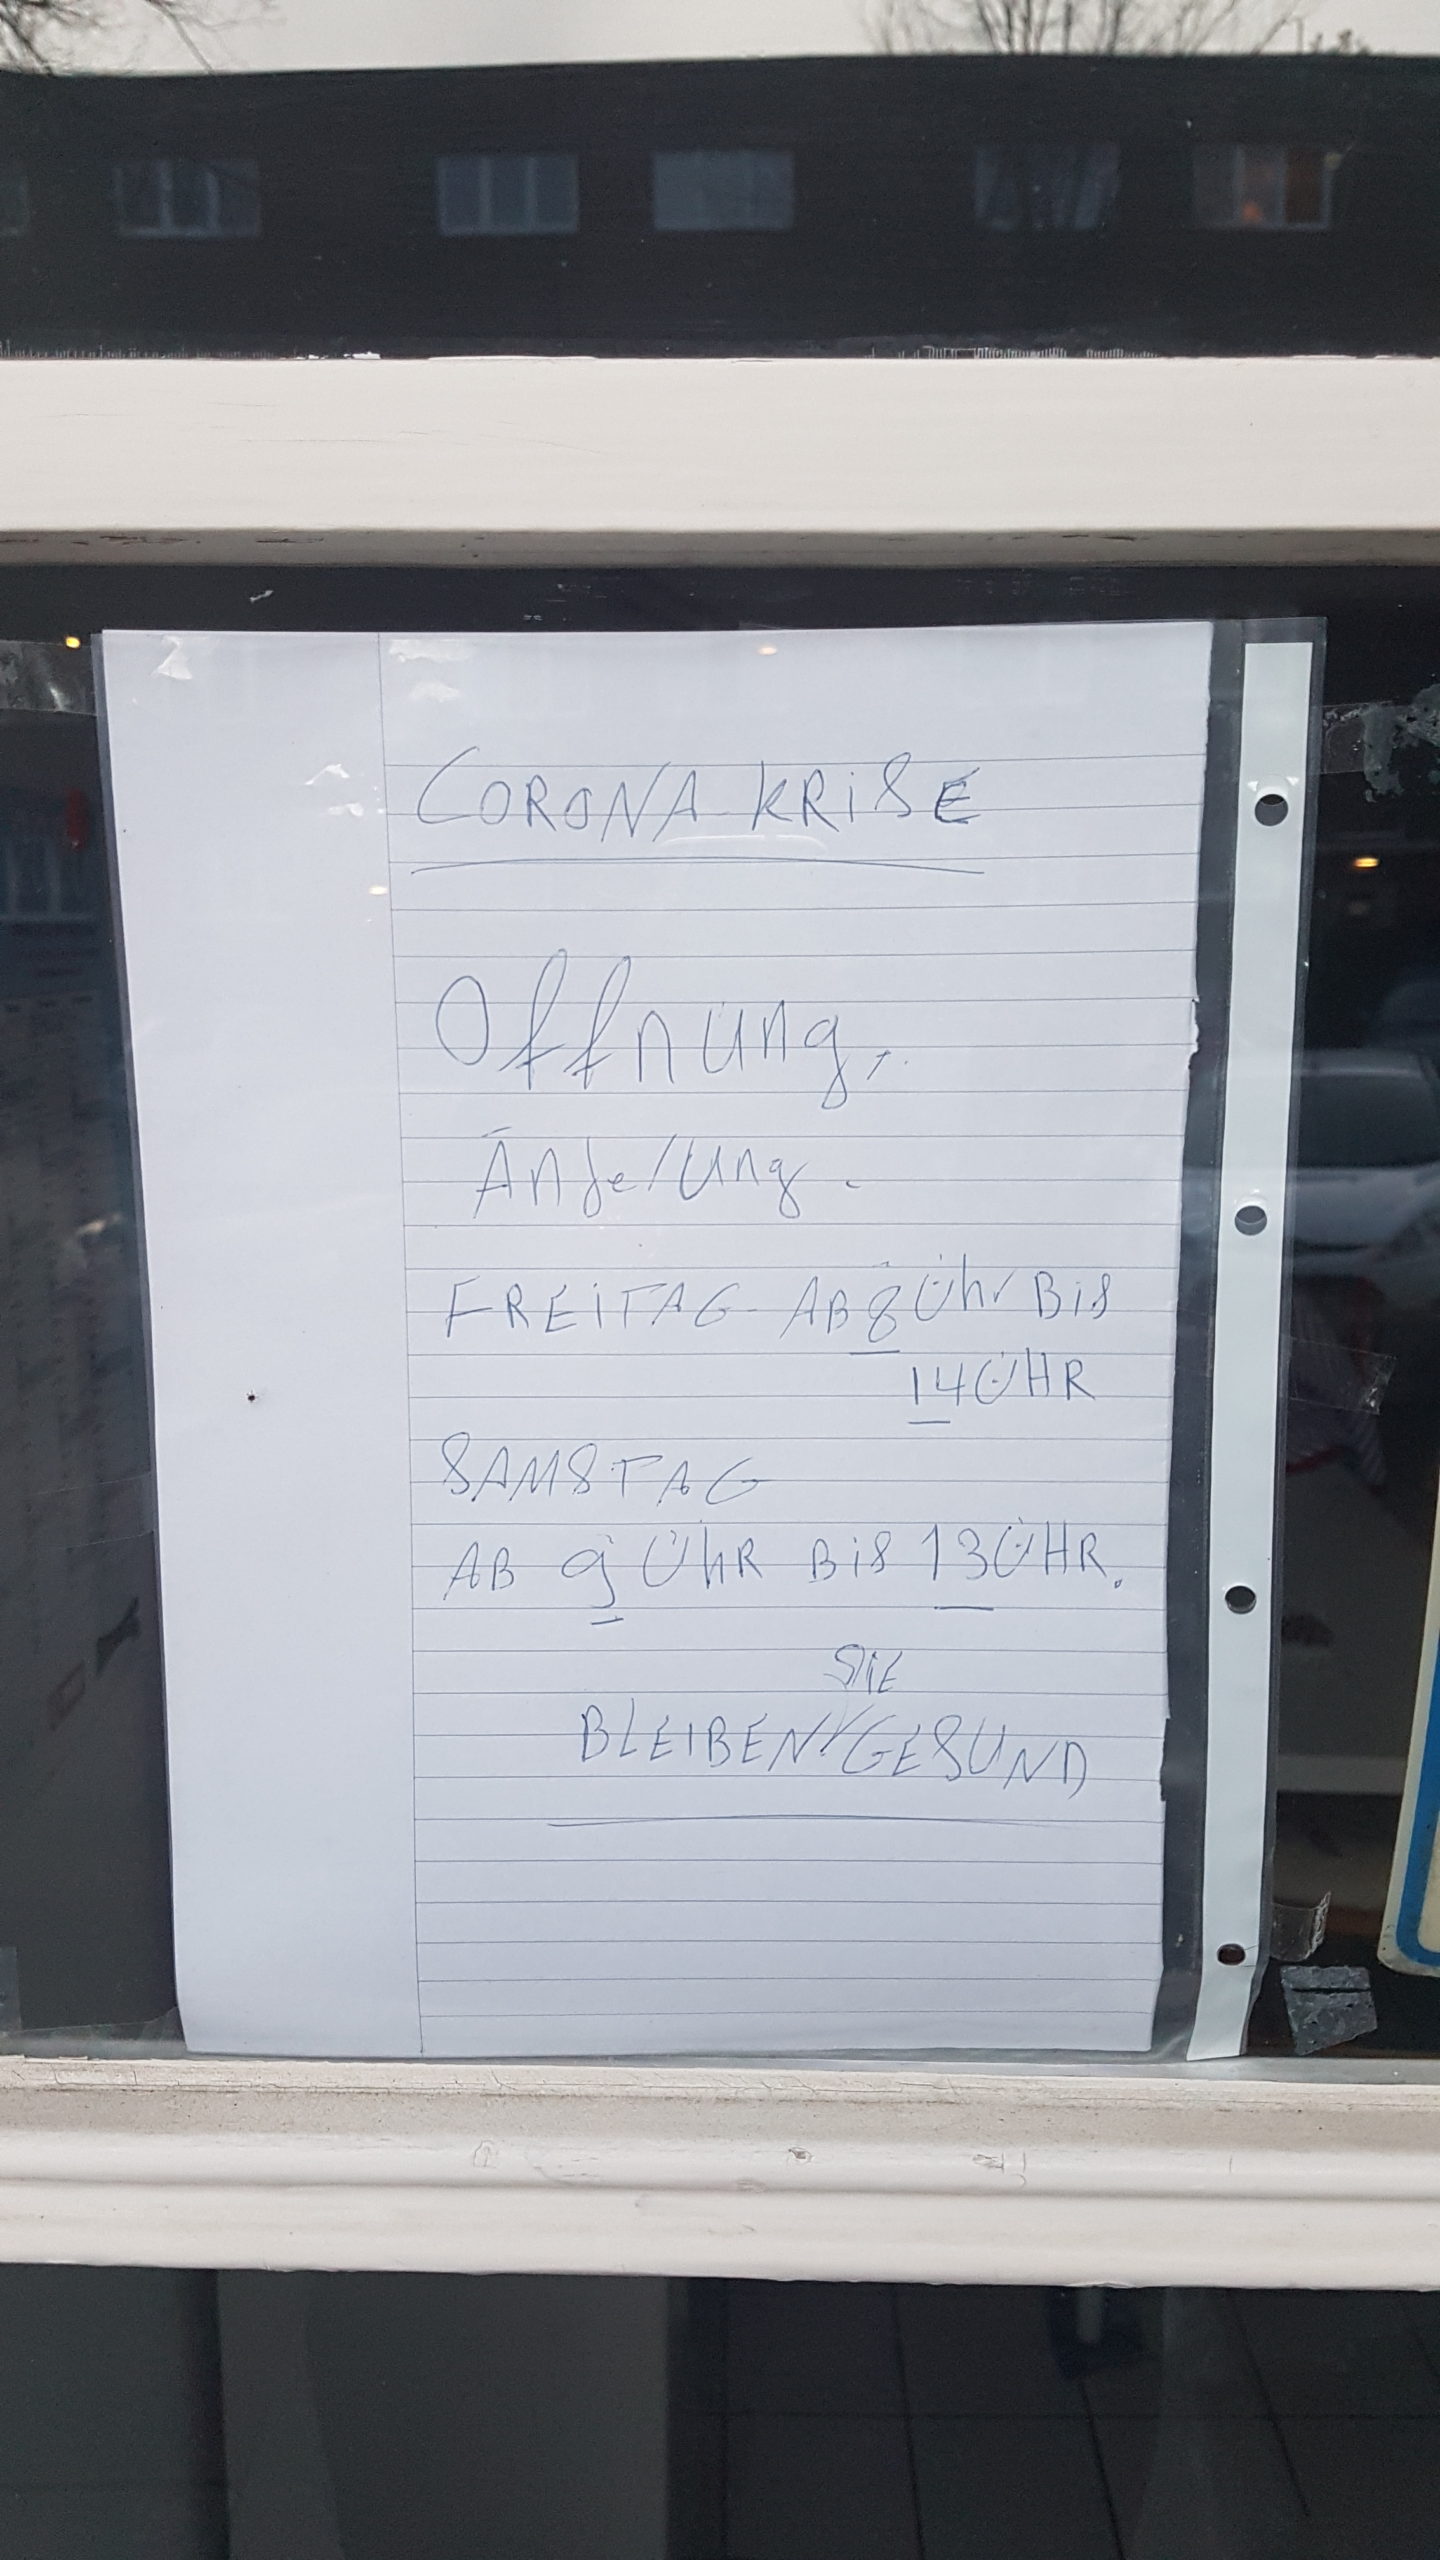 CORONA KRiSE
Offnung,
Änderung.
FREiTAG AB 8 Ühr BiS
14 ÜHR
SAMSTAG
AB 9 ÜhR BiS 13 ÜHR.
SiE
BLEIBEN GESUND